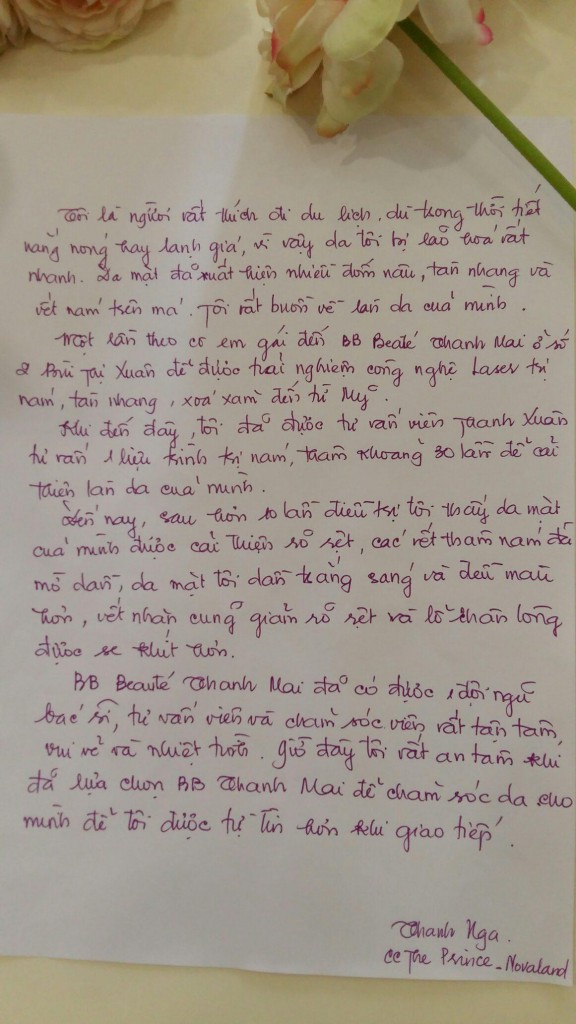 Tôi là người rất thích đi du lịch, dù trong thời tiết
nắng nóng hay lạnh giá, vì vậy da tôi bị lão hoá rất
nhanh. Da mặt đã xuất hiện nhiều đốm nâu, tàn nhang và
vết nám trên má. Tôi rất buồn về làn da của mình.
Một lần theo cô em gái đến BB Beauté Thanh Mai ở số
2 Bùi Thị Xuân để được trải nghiệm công nghệ Laser trị
nám, tàn nhang, xoá xăm đến từ Mỹ.
Khi đến đây, tôi đã được tư vấn viên Thanh Xuân
tư vấn 1 liệu trình trị nám, tầm khoảng 30 lần để cải
thiện làn da của mình.
Đến nay, sau hơn 10 lần điều trị tôi thấy da mặt
của mình được cải thiện rõ rệt, các vết thâm nám đã
mờ dần, da mặt tôi dần trắng sáng và đều màu
hơn, vết nhăn cũng giảm rõ rệt và lỗ chân lông
được se khít hơn.
BB Beauté Thanh Mai đã có được 1 đội ngũ
bác sĩ, tư vấn viên và chăm sóc viên rất tận tâm,
vui vẻ và nhiệt tình. Giờ đây tôi rất an tâm khi
đã lựa chọn BB Thanh Mai để chăm sóc da cho
mình để tôi được tự tin hơn khi giao tiếp.
Thanh Nga.
CC The Prince - Novaland